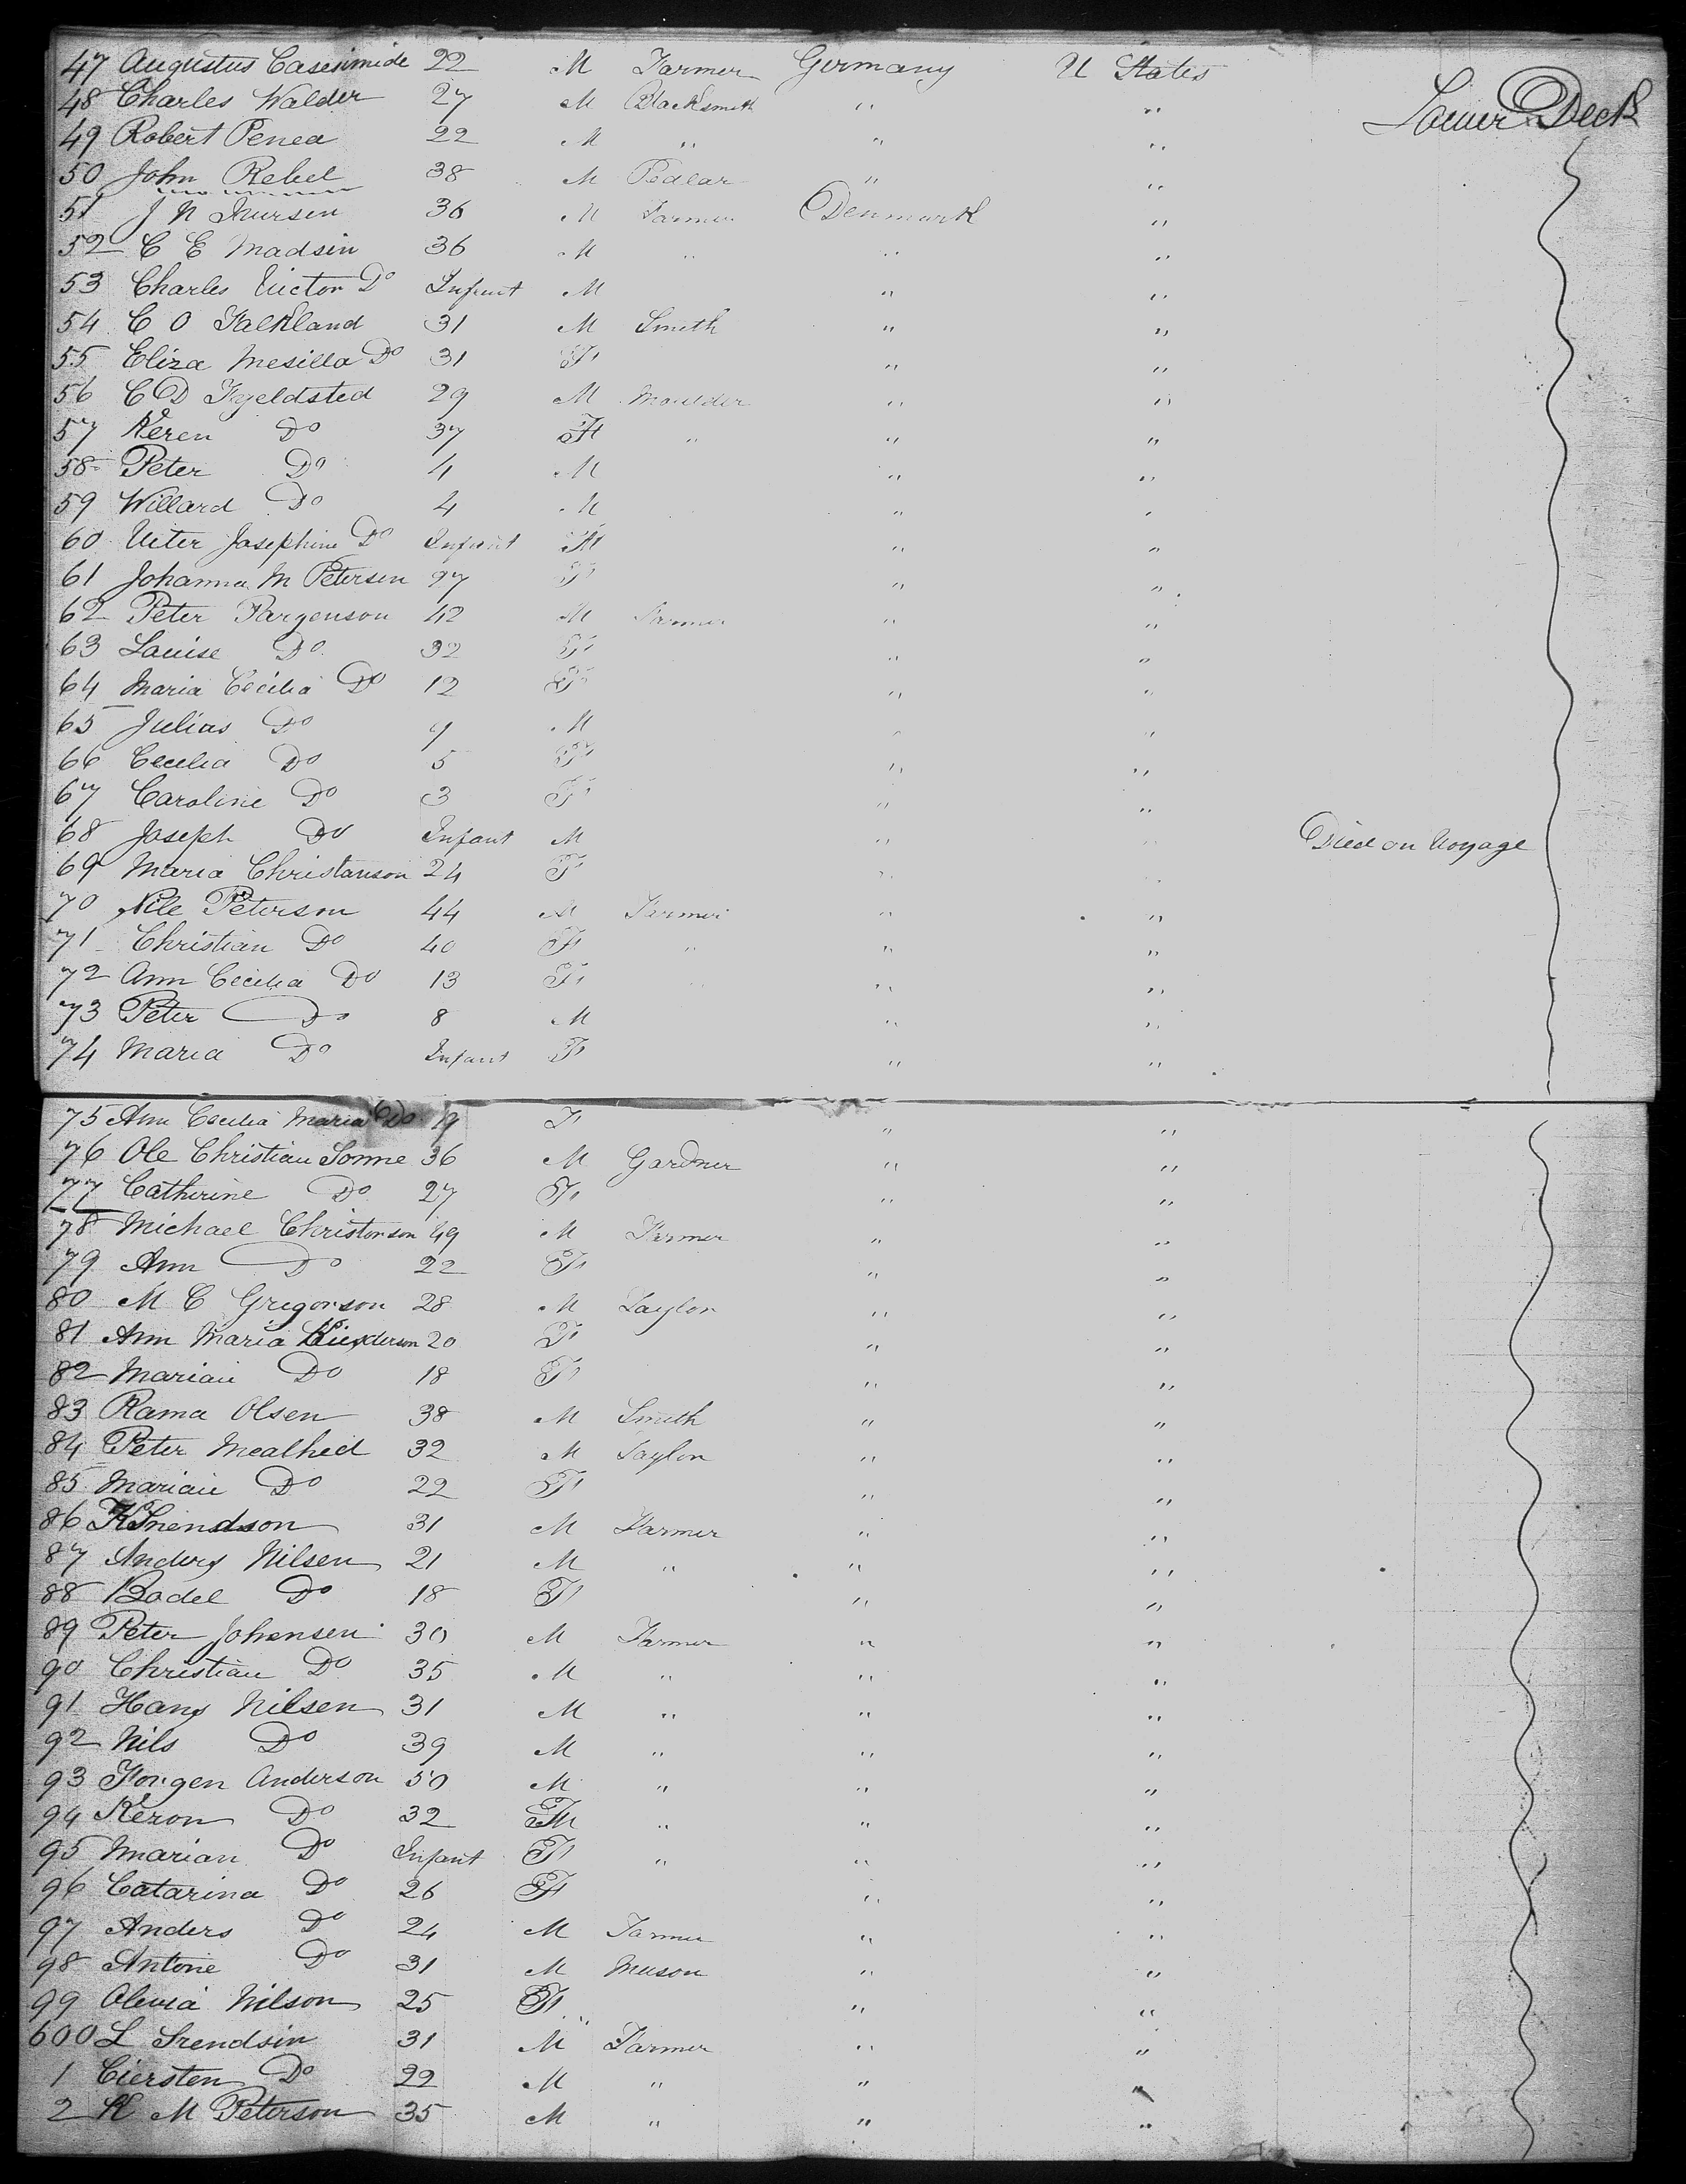 47 Augustus Casesimide 22 M Farmer Germany U States
Lower Deck
48 Charles Walder 27 M Blacksmith " "
49 Robert Penea 22 M " " "
50 John Rebel 38 M Pedlar " "
51 J N Inursen 36 M Farmer Denmark "
52 C E Madsin 36 M " " "
53 Charles Victor Do Infant M " "
54 C O Falkland 31 M Smith " "
55 Eliza Mesilla Do 31 F " "
56 C D Fjeldsted 29 M Moulder " "
57 Keren Do 37 F " " "
58 Peter Do 4 M " "
59 Willard Do 4 M " "
60 Josephine Do Infant " "
61 Johanna M Petersen 97 F " "
62 Peter Pargenson 42 M Farmer " "
63 Louise Do 32 F " "
64 Maria Cecilia Do 12 F " "
65 Julias Do 9 M " "
66 Cecilia Do 5 F " "
67 Caroline Do 3 F " "
68 Joseph Do Infant M " " Died on Voyage
69 Maria Christanson 24 F " "
70 Nile Peterson 44 M Farmer " "
71 Christian Do 40 F " " "
72 Ann Cecilia Do 13 F " " "
73 Peter Do 8 M " "
74 Maria Do Infant F " "
75 Ann Cecilia Maria Do 19 F " "
76 Ole Christian Sonne 36 M Gardner " "
77 Catherine Do 27 F " "
78 Michael Christonson 49 M Farmer " "
79 Ann Do 22 F " "
80 M C Gregorson 28 M Taylor " "
81 Ann Maria 20 F " "
82 Mariai Do 18 F " "
83 Rama Olsen 38 M Smith " "
84 Peter Mealhed 32 M Taylor " "
85 Mariai Do 22 F " "
86 31 M Farmer " "
87 Anders Nilsen 21 M " " "
88 Bodel Do 18 F " "
89 Peter Johensen 30 M Farmer " "
90 Christian Do 35 M " " "
91 Hans Nilsen 31 M " " "
92 Nils Do 39 M " " "
93 Forgen Anderson 50 M " " "
94 Keron Do 32 F " " "
95 Marian Do Infant F " " "
96 Catarina Do 26 F " "
97 Anders Do 24 M Farmer " "
98 Antone Do 31 M Mason " "
99 Olevia Nilson 25 F " "
600 L Srendsin 31 M Farmer " "
1 Ciersten Do 22 M " " "
2 K M Peterson 35 M " " "